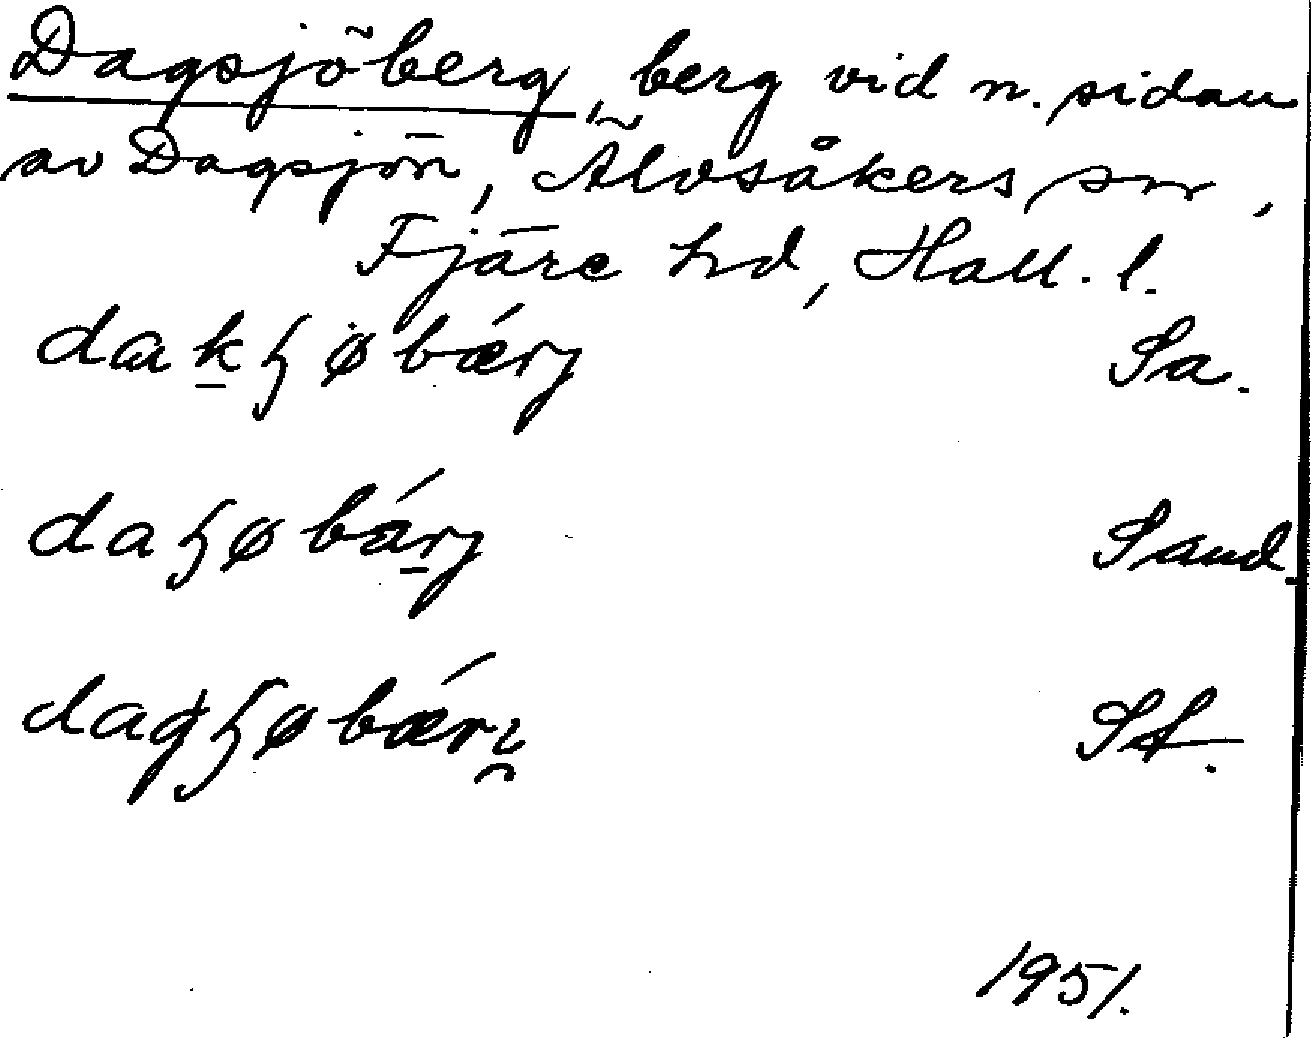 Dagsjöberg, berg vid n. sidan
av Dagsjön, Älvsåkers sn,
Fjäre hd, Hall. l.
dakʃøbærj Sa.
daʃøbarj Sand.
dagʃøbæri St.
1951.